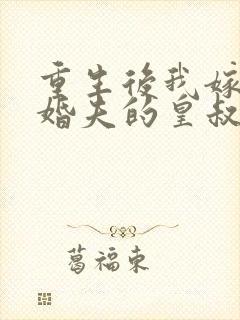 重生後我嫁
婚夫的皇叔
葛福東